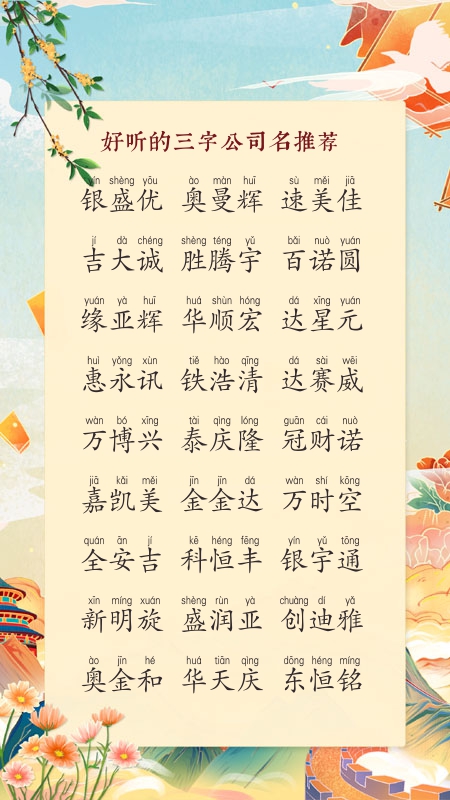 好听的三字公司名推荐
yín shèng yōu ào màn huī sù měi jiā
银盛优 奥曼辉 速美佳
jí dà chéng shèng téng yǔ bǎi nuò yuán
吉大诚 胜腾宇 百诺圆
yuán yà huī huá shùn hóng dá xīng yuán
缘亚辉 华顺宏 达星元
huì yǒng xùn tiě hào qīng dá sài wēi
惠永讯 铁浩清 达赛威
wàn bó xīng tài qìng lóng guān cái nuò
万博兴 泰庆隆 冠财诺
jiā kǎi měi jīn jīn dá wàn shí kōng
嘉凯美 金金达 万时空
quán ān jí kē héng fēng yín yǔ tōng
全安吉 科恒丰 银宇通
xīn míng xuán shèng rùn yà chuàng dí yǎ
新明旋 盛润亚 创迪雅
ào jīn hé huá tiān qìng dōng héng míng
奥金和 华天庆 东恒铭